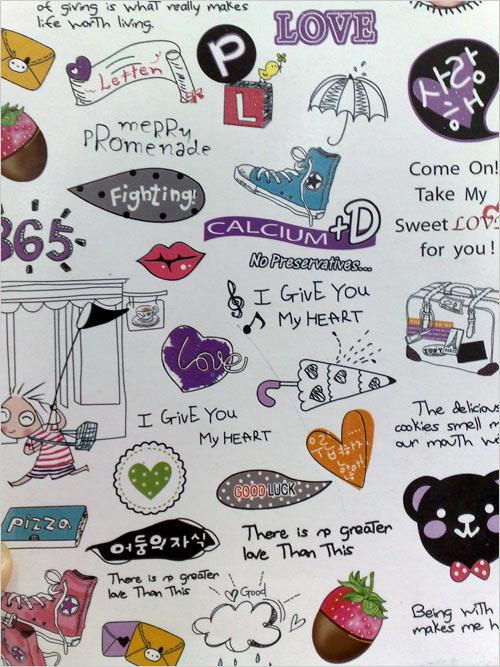 of giving is what really makes
life worth living.
LOVE
Letter
P
L
사랑해
meppy
pROmenade
Fighting!
Come On!
Take My
Sweet LOVE
for you!
365
CALCIUM+D
No Preservatives...
I GivE YOU
My HEART
Love
I GivE YOU
My HEART
The delicious
cookies smell m
our mouth w
우울하지
않아!
GOOD LUCK
pizza
어둠의자식
There is no greater
love Than This
There is no greater
love Than This
Good
Being with
makes me h